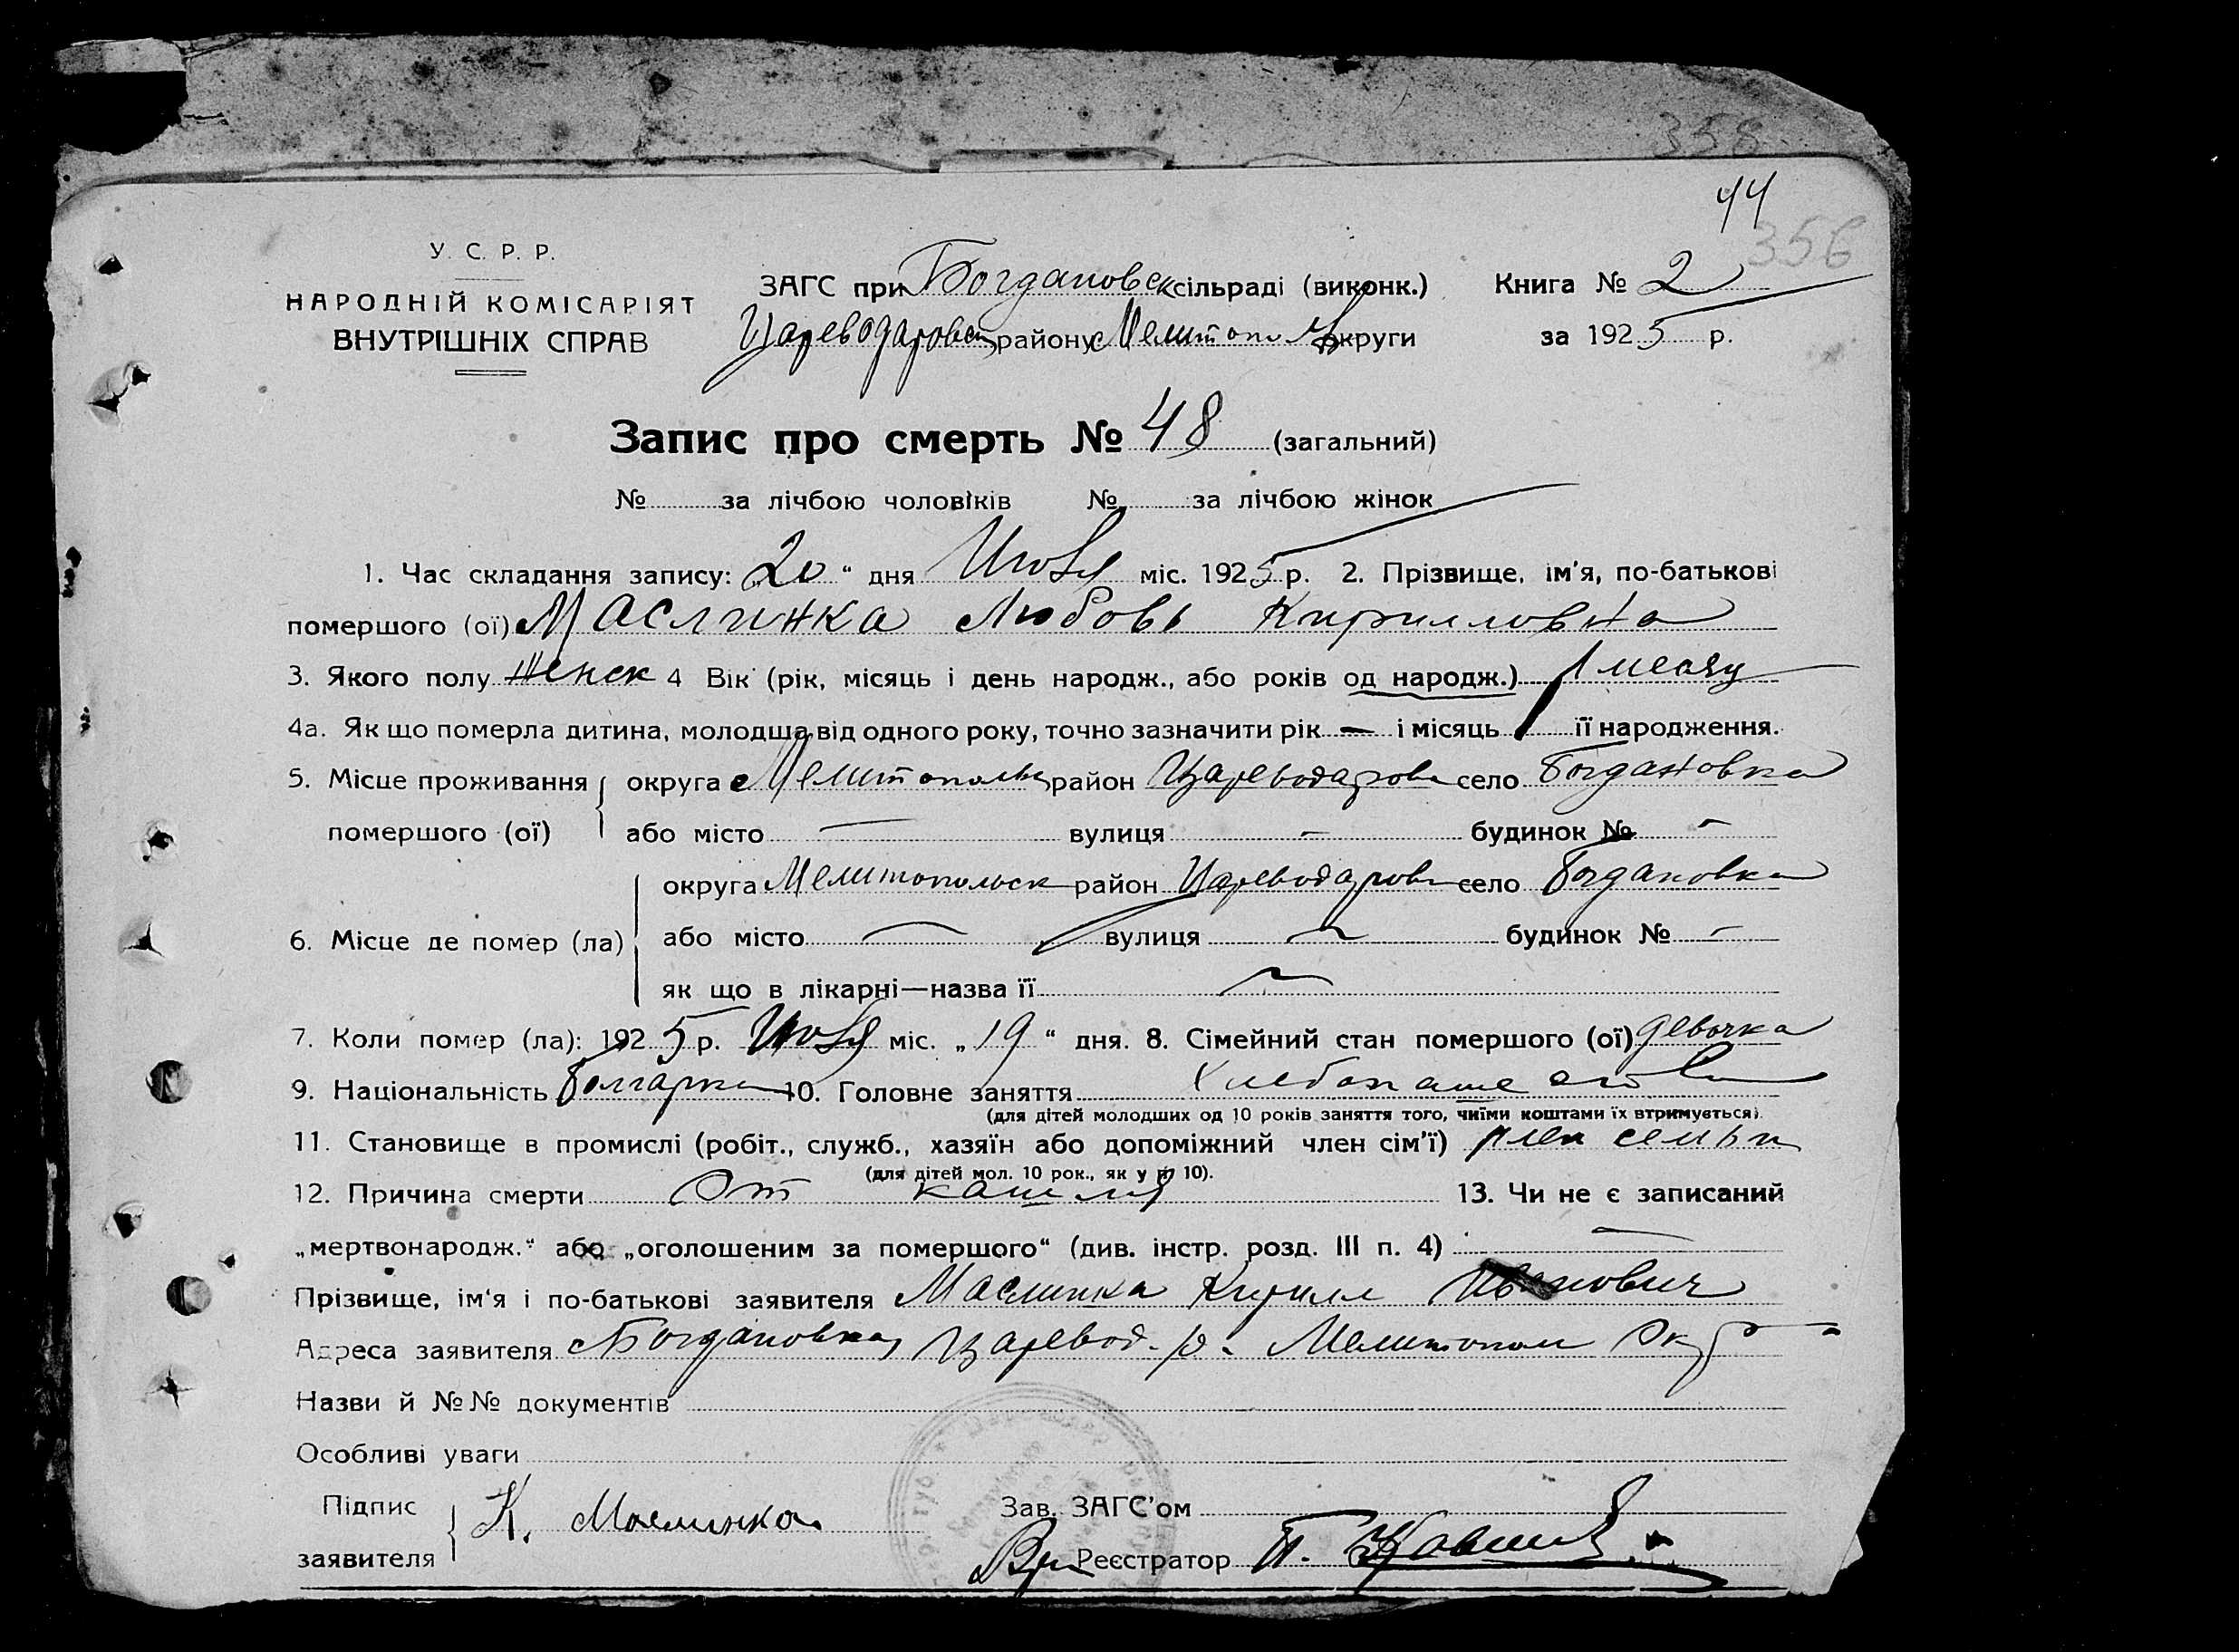 358
44
356
У. С. Р. Р.
НАРОДНІЙ КОМІСАРІЯТ
ВНУТРІШНІХ СПРАВ
ЗАГС при Богдановск сільраді (виконк.) Книга № 2
Цареводаровск району Мелитопол округи за 1925 р.
Запис про смерть № 48 (загальний)
№ за лічбою чоловіків № за лічбою жінок
1. Час складання запису: „20“ дня Июля міс. 1925 р. 2. Прізвище, ім'я, по-батькові
помершого (ої) Маслинка Любовь Кирилловна
3. Якого полу женск 4 Вік (рік, місяць і день народж., або років од народж.) 1 месяц
4а. Як що померла дитина, молодша від одного року, точно зазначити рік — і місяць 1 її народження.
5. Місце проживання округа Мелитопольск район Цареводаровск село Богдановка
помершого (ої) або місто — вулиця — будинок № —
округа Мелитопольск район Цареводаровск село Богдановка
6. Місце де помер (ла) або місто — вулиця — будинок № —
як що в лікарні—назва її —
7. Коли помер (ла): 1925 р. Июля міс. „19“ дня. 8. Сімейний стан помершого (ої) девочка
9. Національність Болгарка 10. Головне заняття Хлебопашество
(для дітей молодших од 10 років заняття того, чиїми коштами їх втримується)
11. Становище в промислі (робіт., служб., хазяїн або допоміжний член сім'ї) член семьи
(для дітей мол. 10 рок., як у п 10).
12. Причина смерти От кашля 13. Чи не є записаний
„мертвонародж.“ або „оголошеним за помершого“ (див. інстр. розд. III п. 4) —
Прізвище, ім'я і по-батькові заявителя Маслинка Кирилл Иванович
Адреса заявителя Богдановка, Царевод. р. Мелитопол Окр
Назви й №№ документів
Особливі уваги
Підпис
заявителя К. Маслинка
Зав. ЗАГС'ом
Вр. Реєстратор П.